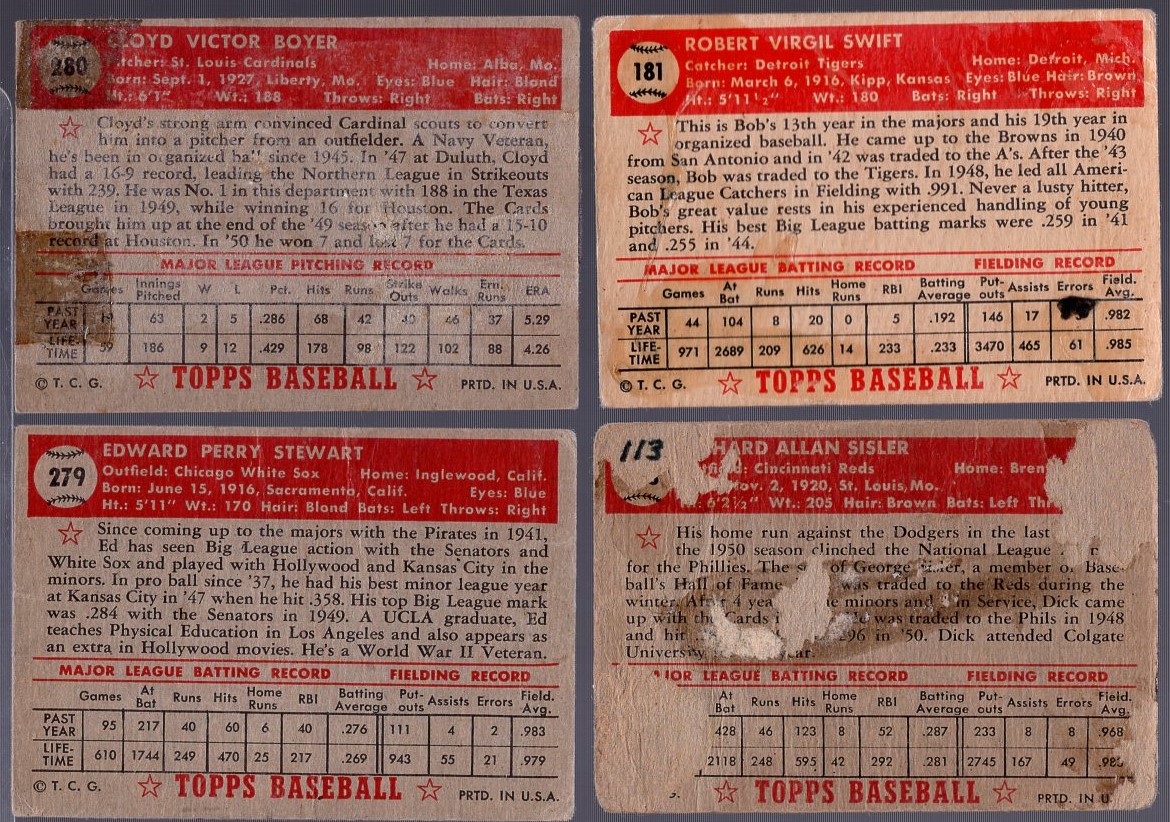 280
LOYD VICTOR BOYER
tcher: St. Louis Cardinals Home: Alba, Mo.
Born: Sept. 1, 1927, Liberty, Mo. Eyes: Blue Hair: Blond
Ht.: 6'1" Wt.: 188 Throws: Right Bats: Right
Cloyd's strong arm convinced Cardinal scouts to convert
him into a pitcher from an outfielder. A Navy Veteran,
he's been in organized ball since 1945. In '47 at Duluth, Cloyd
had a 16-9 record, leading the Northern League in Strikeouts
with 239. He was No. 1 in this department with 188 in the Texas
League in 1949, while winning 16 for Houston. The Cards
brought him up at the end of the '49 season after he had a 15-10
record at Houston. In '50 he won 7 and lost 7 for the Cards.
MAJOR LEAGUE PITCHING RECORD
Games Innings Pitched W L Pct. Hits Runs Strike Outs Walks Ern. Runs ERA
PAST YEAR 63 2 5 .286 68 42 40 46 37 5.29
LIFE-TIME 59 186 9 12 .429 178 98 122 102 88 4.26
© T. C. G. TOPPS BASEBALL PRTD. IN U.S.A.
181
ROBERT VIRGIL SWIFT
Catcher: Detroit Tigers Home: Detroit, Mich.
Born: March 6, 1916, Kipp, Kansas Eyes: Blue Hair: Brown
Ht.: 5'11½" Wt.: 180 Bats: Right Throws: Right
This is Bob's 13th year in the majors and his 19th year in
organized baseball. He came up to the Browns in 1940
from San Antonio and in '42 was traded to the A's. After the '43
season, Bob was traded to the Tigers. In 1948, he led all Ameri-
can League Catchers in Fielding with .991. Never a lusty hitter,
Bob's great value rests in his experienced handling of young
pitchers. His best Big League batting marks were .259 in '41
and .255 in '44.
MAJOR LEAGUE BATTING RECORD FIELDING RECORD
Games At Bat Runs Hits Home Runs RBI Batting Average Put-outs Assists Errors Field. Avg.
PAST YEAR 44 104 8 20 0 5 .192 146 17 .982
LIFE-TIME 971 2689 209 626 14 233 .233 3470 465 61 .985
© T. C. G. TOPPS BASEBALL PRTD. IN U.S.A.
279
EDWARD PERRY STEWART
Outfield: Chicago White Sox Home: Inglewood, Calif.
Born: June 15, 1916, Sacramento, Calif. Eyes: Blue
Ht.: 5'11" Wt.: 170 Hair: Blond Bats: Left Throws: Right
Since coming up to the majors with the Pirates in 1941,
Ed has seen Big League action with the Senators and
White Sox and played with Hollywood and Kansas City in the
minors. In pro ball since '37, he had his best minor league year
at Kansas City in '47 when he hit .358. His top Big League mark
was .284 with the Senators in 1949. A UCLA graduate, Ed
teaches Physical Education in Los Angeles and also appears as
an extra in Hollywood movies. He's a World War II Veteran.
MAJOR LEAGUE BATTING RECORD FIELDING RECORD
Games At Bat Runs Hits Home Runs RBI Batting Average Put-outs Assists Errors Field. Avg.
PAST YEAR 95 217 40 60 6 40 .276 111 4 2 .983
LIFE-TIME 610 1744 249 470 25 217 .269 943 55 21 .979
© T. C. G. TOPPS BASEBALL PRTD. IN U.S.A.
113
HARD ALLAN SISLER
Cincinnati Reds Home: Bren
ov. 2, 1920, St. Louis, Mo.
6'2½" Wt.: 205 Hair: Brown Bats: Left Th
His home run against the Dodgers in the last
the 1950 season clinched the National League
for the Phillies. The of George Sisler, a member of Base-
ball's Hall of Fame was traded to the Reds during the
winter. After 4 yea minors and in Service, Dick came
up with the Cards was traded to the Phils in 1948
and hit .296 in '50. Dick attended Colgate
University
JOR LEAGUE BATTING RECORD FIELDING RECORD
At Bat Runs Hits Home Runs RBI Batting Average Put-outs Assists Errors Field. Avg.
428 46 123 8 52 .287 233 8 8 .968
2118 248 595 42 292 .281 2745 167 49
TOPPS BASEBALL PRTD. IN U